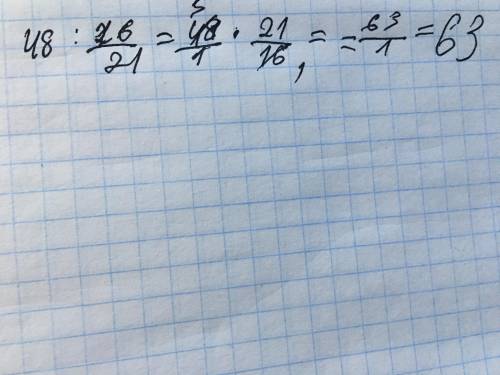 48 : 16/21 = 48/1 · 21/16 = = 63/1 = 63